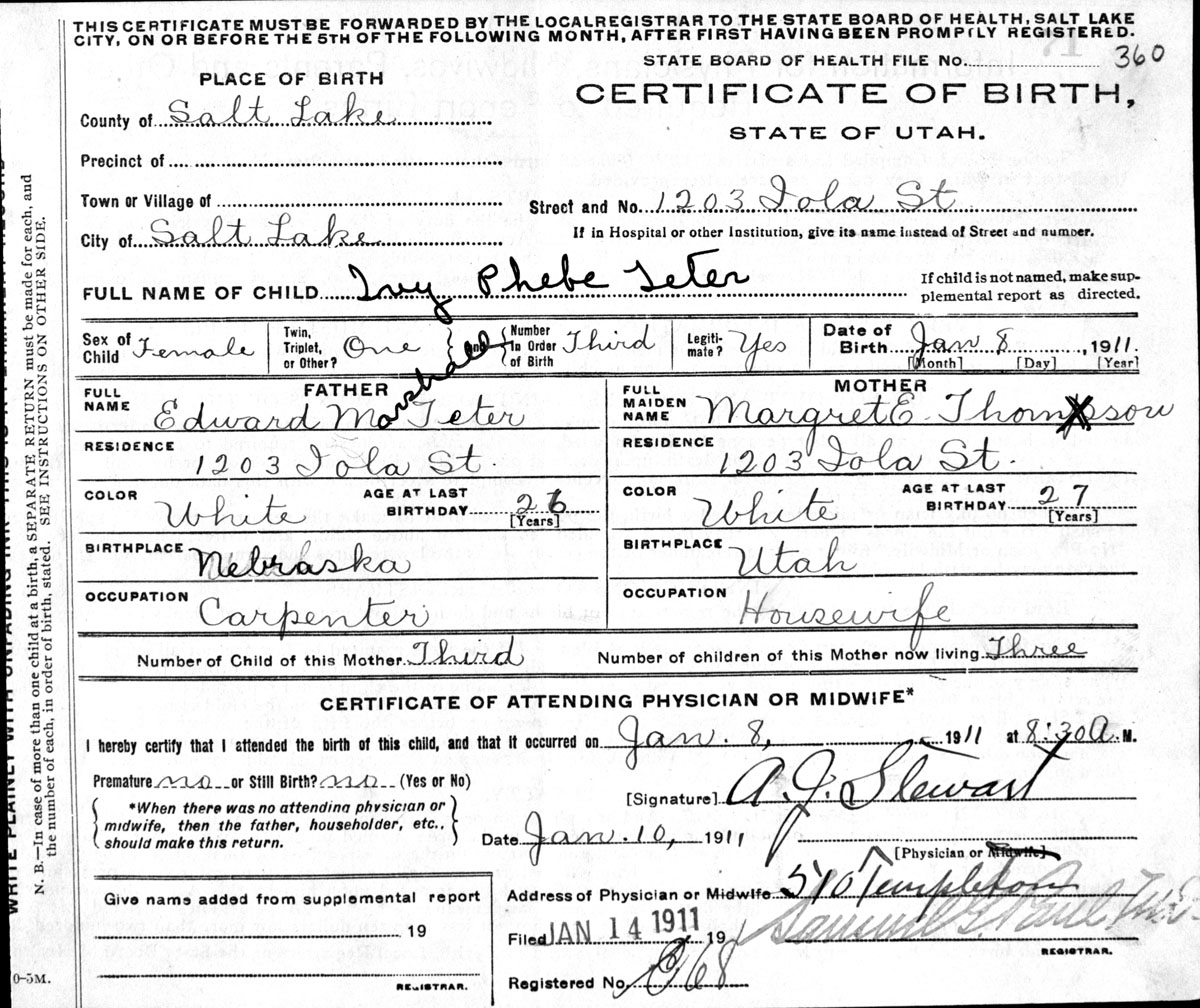 THIS CERTIFICATE MUST BE FORWARDED BY THE LOCAL REGISTRAR TO THE STATE BOARD OF HEALTH, SALT LAKE
CITY, ON OR BEFORE THE 5TH OF THE FOLLOWING MONTH, AFTER FIRST HAVING BEEN PROMPTLY REGISTERED.
STATE BOARD OF HEALTH FILE No. 360
PLACE OF BIRTH
CERTIFICATE OF BIRTH,
STATE OF UTAH.
County of Salt Lake
Precinct of
Town or Village of
Street and No. 1203 Iola St
City of Salt Lake
If in Hospital or other Institution, give its name instead of Street and number.
FULL NAME OF CHILD Ivy Phebe Teter
If child is not named, make sup-
plemental report as directed.
Sex of Child Female
Twin, Triplet, or Other? One
and Number In Order of Birth Third
Legiti-mate? Yes
Date of Birth Jan 8, 1911.
[Month] [Day] [Year]
FATHER
FULL NAME Edward Marshall Teter
RESIDENCE 1203 Iola St.
COLOR White
AGE AT LAST BIRTHDAY 26
[Years]
BIRTHPLACE Nebraska
OCCUPATION Carpenter
MOTHER
FULL MAIDEN NAME Margret E. Thomson
RESIDENCE 1203 Iola St.
COLOR White
AGE AT LAST BIRTHDAY 27
[Years]
BIRTHPLACE Utah
OCCUPATION Housewife
Number of Child of this Mother Third
Number of children of this Mother now living Three
CERTIFICATE OF ATTENDING PHYSICIAN OR MIDWIFE*
I hereby certify that I attended the birth of this child, and that it occurred on Jan. 8, 1911 at 8:30 A. M.
Premature no or Still Birth? no (Yes or No)
*When there was no attending physician or
midwife, then the father, householder, etc.,
should make this return.
[Signature] A. J. Stewart
Date Jan. 10, 1911
[Physician or Midwife]
Address of Physician or Midwife 510 Templeton
Give name added from supplemental report
19
REGISTRAR.
Filed JAN 14 1911 191
REGISTRAR.
Registered No. 68
0-5M.
WRITE PLAINLY WITH UNFADING INK
N. B.—In case of more than one child at a birth, a SEPARATE RETURN must be made for each, and
the number of each, in order of birth, stated. SEE INSTRUCTIONS ON OTHER SIDE.